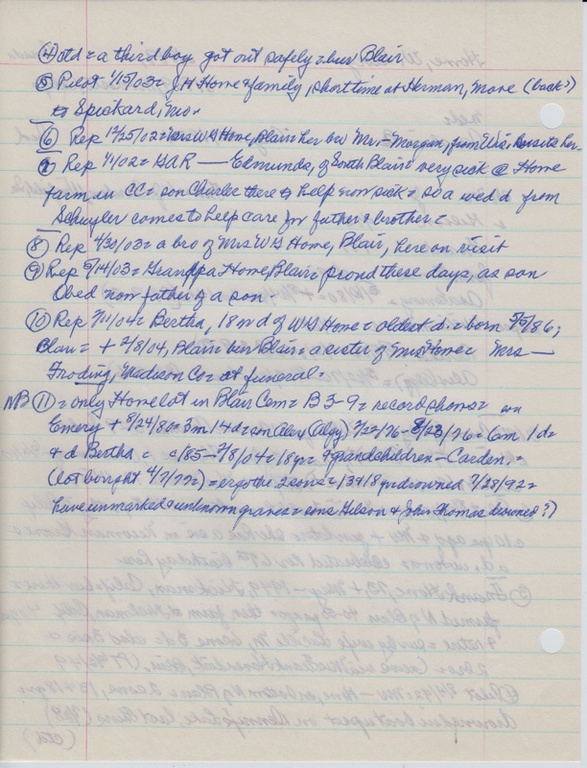 ④ ctd = a third boy got out safely = bur Blair
⑤ Pilot 1/15/03 = J H Horne & family, short time at Herman, move (back?)
to Spickard, Mo.
⑥ Rep 12/25/02 = Mrs W S Horne, Blair = her bro Mr. - Morgan, from Wis. visits her
⑦ Rep 1/1/02 = GAR — Edmunds, of South Blair = very sick @ Horne
farm in CC = son Charlie there to help now sick = so a wed d from
Schuyler comes to help care for father & brother =
⑧ Rep 4/30/03 = a bro of Mrs W S Horne, Blair, here on visit
⑨ Rep 5/14/03 = Grandpa Horne, Blair = proud these days, as son
Obed now father of a son -
⑩ Rep 7/11/04 = Bertha, 18 = d of W S Horne = oldest d. = born 5/5/86;
Blair = + 2/8/04, Blair = bur Blair = a sister of Mrs Horne = Mrs —
Froding, Madison Co = at funeral =
NB ⑪ = only Horne lot in Blair Cem = B 3-9 = record shows =
Emery + 8/24/80 = 3m 14d = son Alex (Algy) 7/22/76 - 8/23/76 = 6m 1d =
& d Bertha = c/85 - 2/8/04 = 18yr = 4 grandchildren - Carden. =
(lot bought 4/7/77 =) = ergo the 2 sons = 13 & 18 yr drowned 7/28/92 =
have unmarked & unknown graves = sons Gilson & John Thomas drowned?)